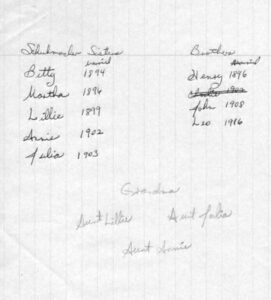 Schuhmacher Sisters
married
Betty 1894
Martha 1896
Lillie 1899
Annie 1902
Julia 1903
Brothers
married
Henry 1896
1902
John 1908
Leo 1916
Grandma
Aunt Lillie Aunt Julia
Aunt Annie